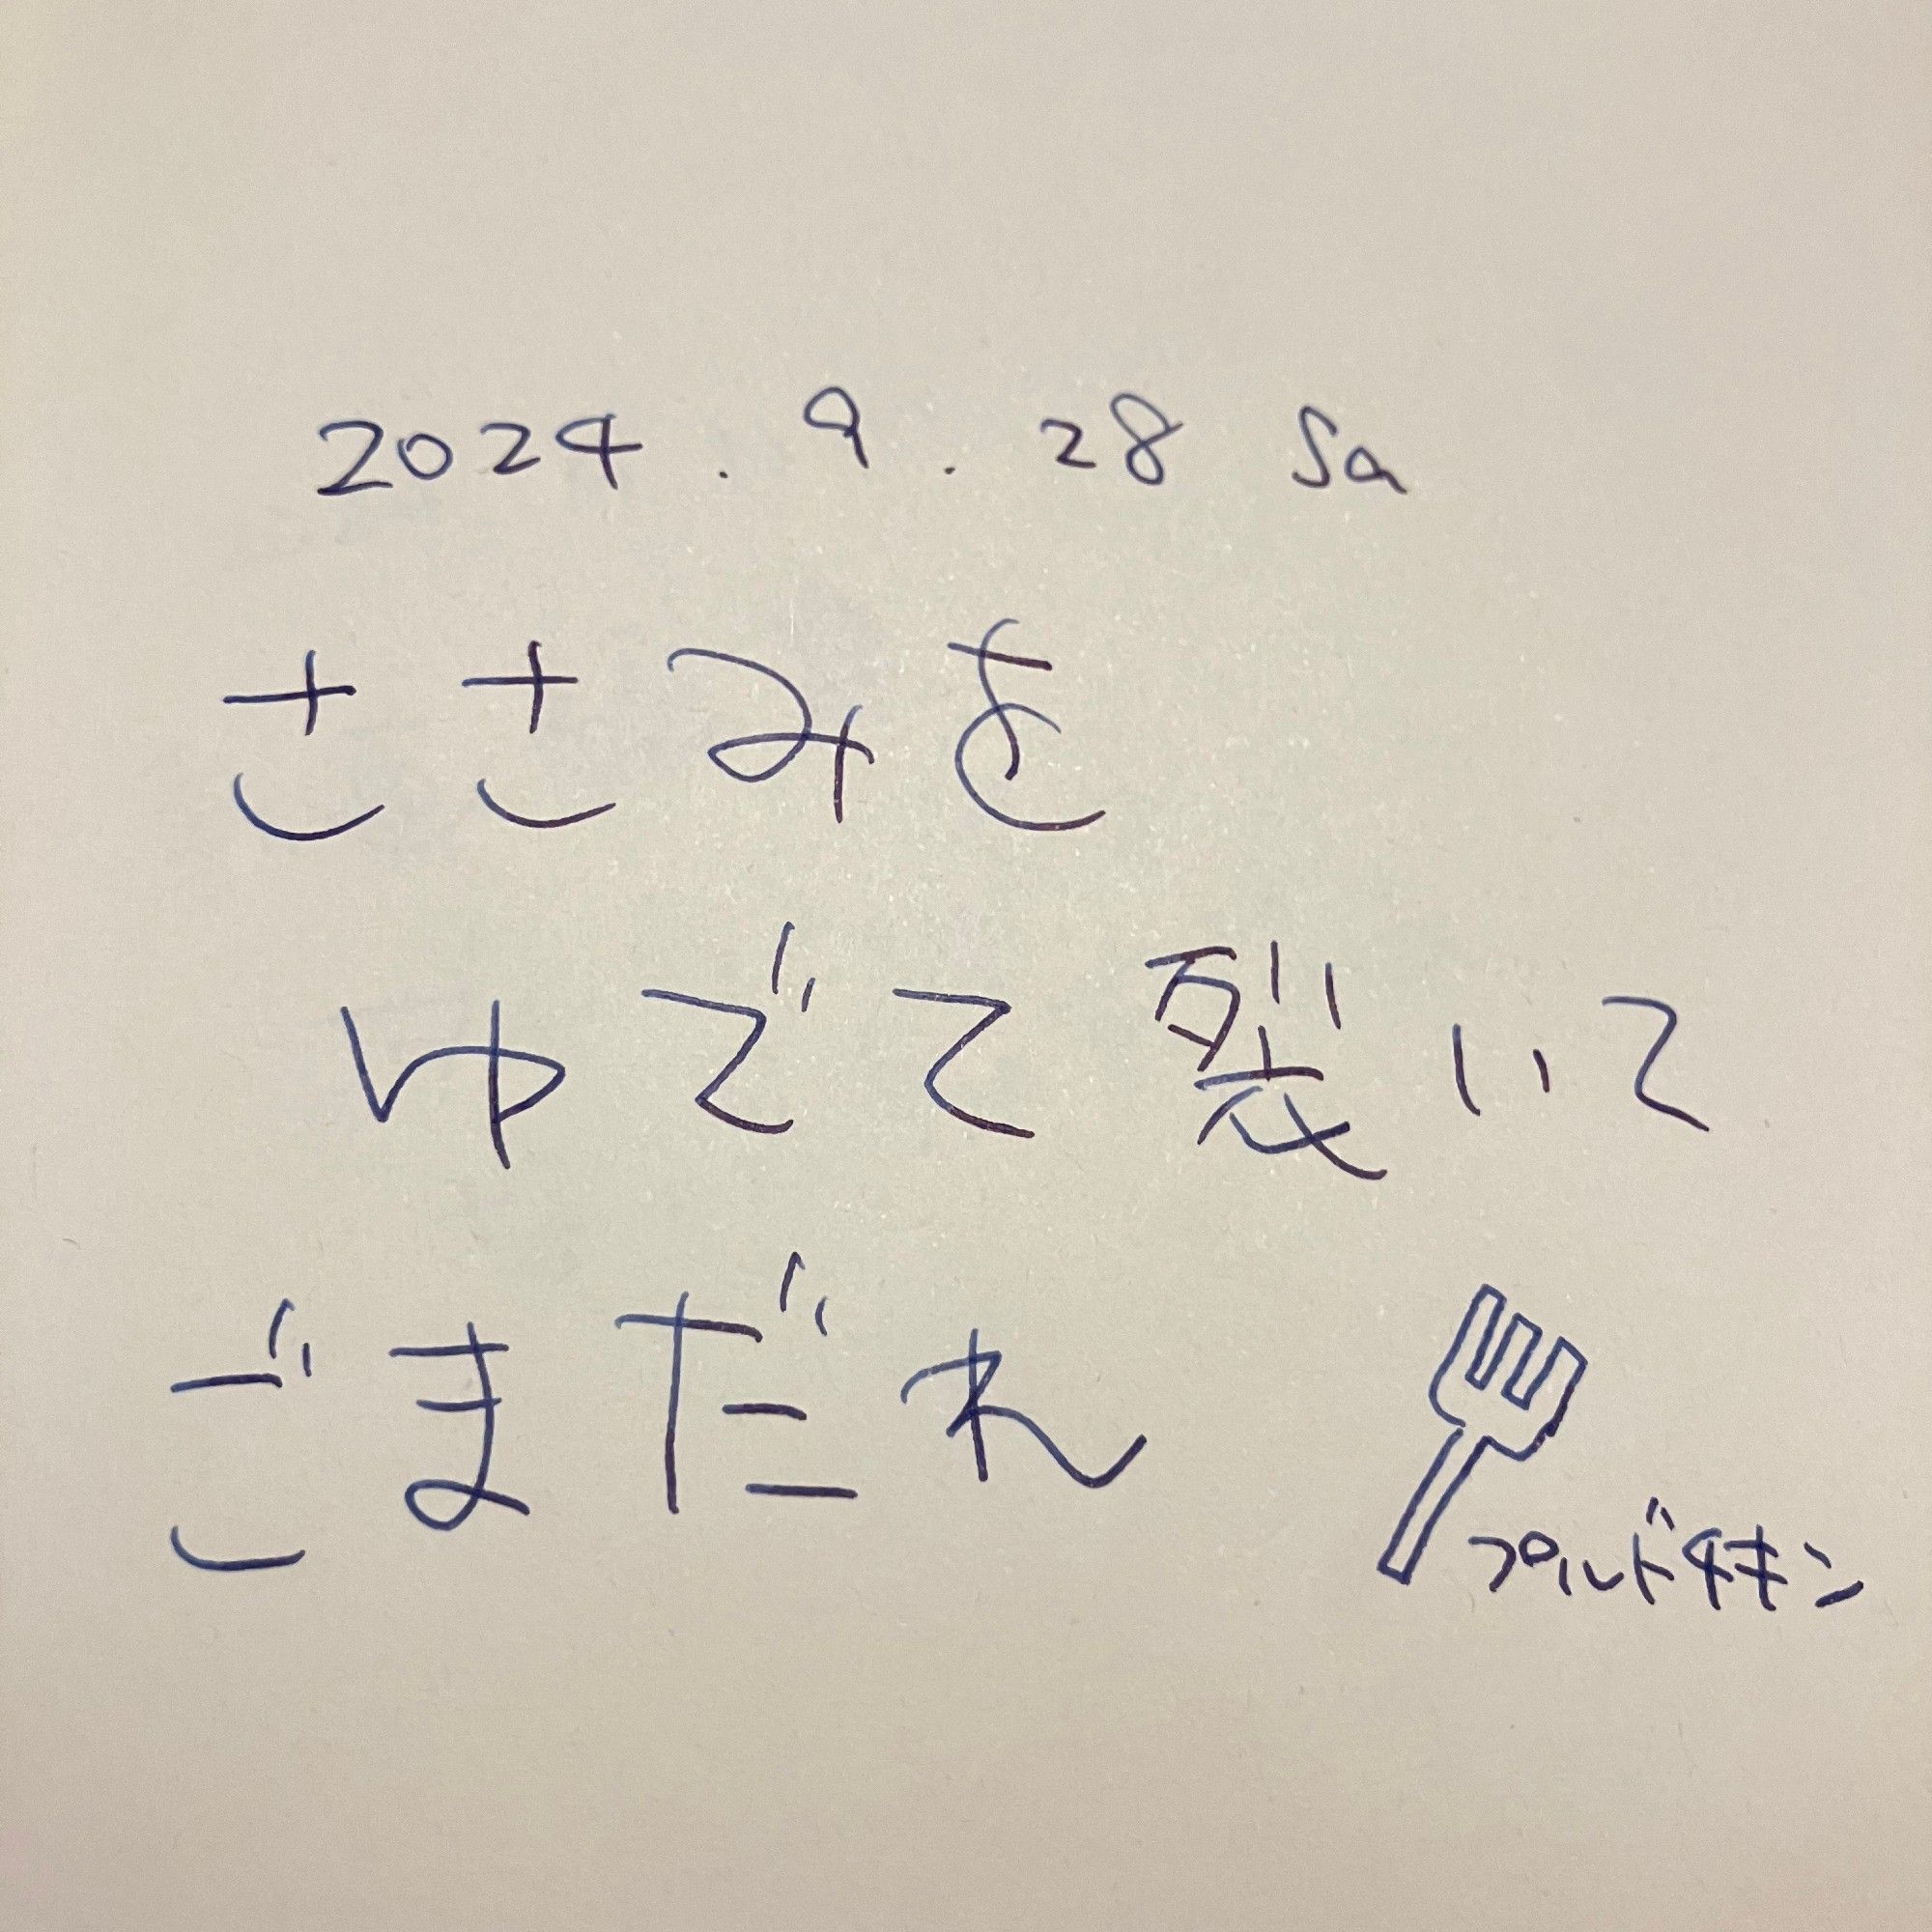 2024.9.28 Sa
ささみを
ゆでて裂いて
ごまだれ
プルドチキン